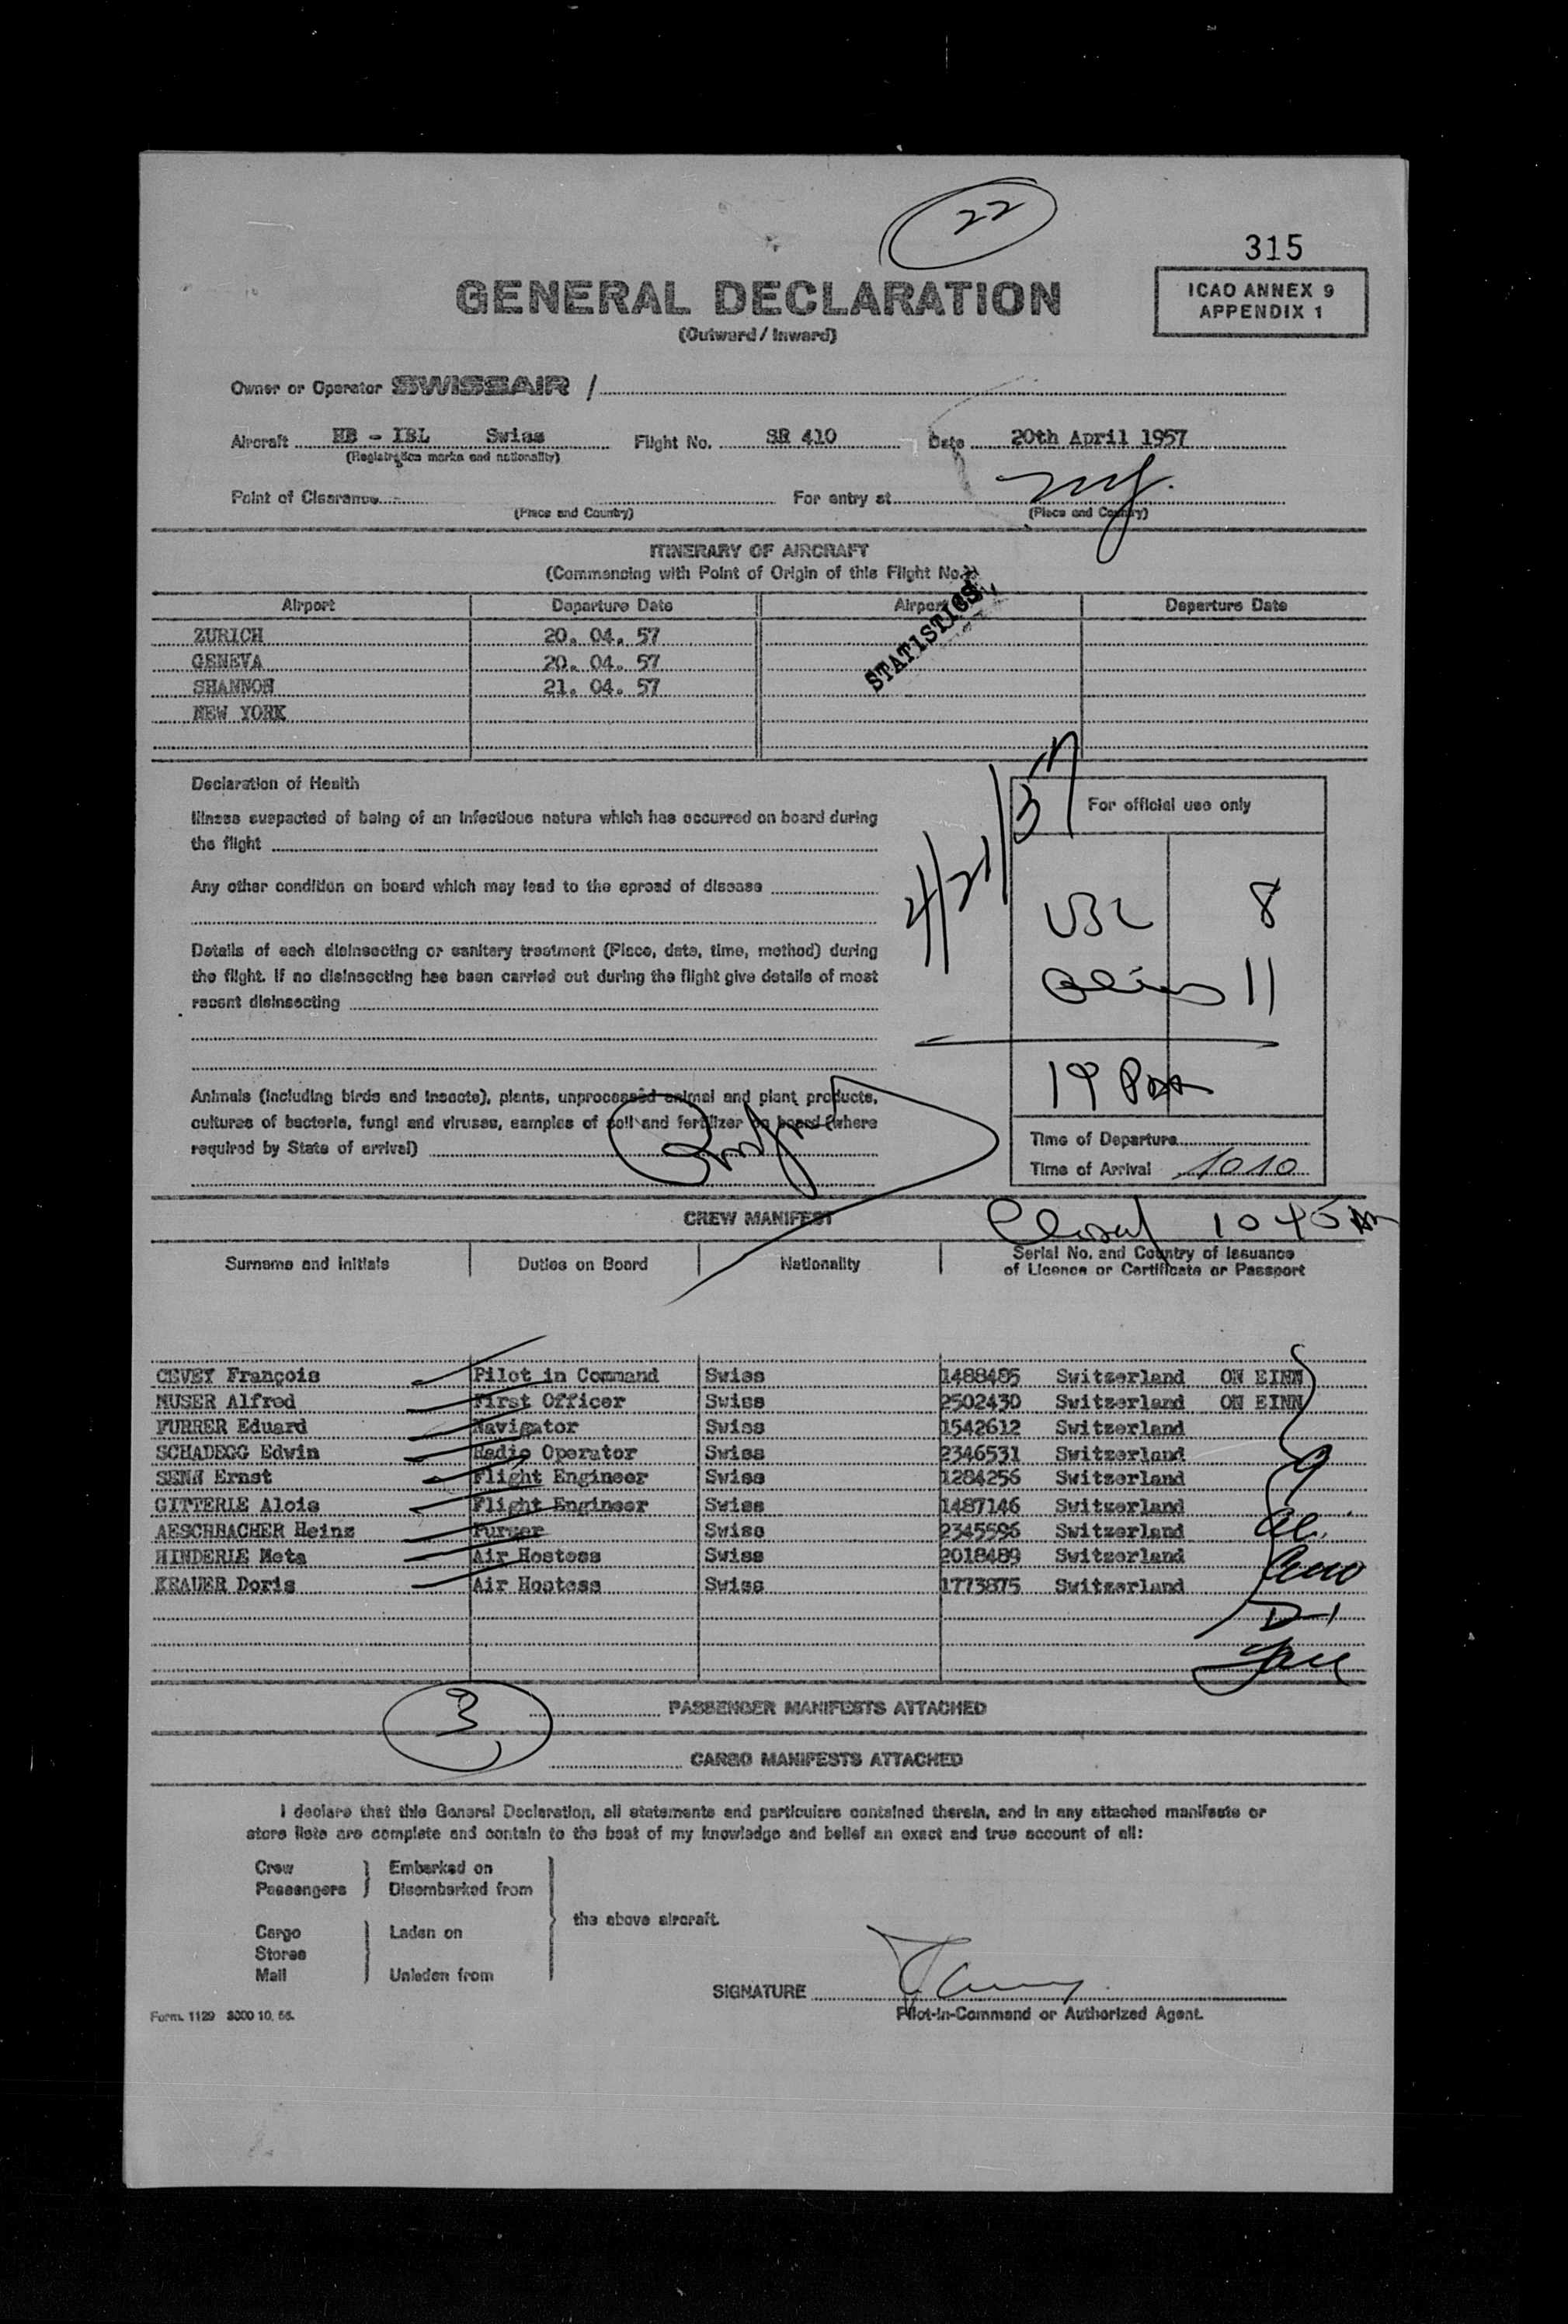 22
315
GENERAL DECLARATION
(Outward / Inward)
ICAO ANNEX 9
APPENDIX 1
Owner or Operator SWISSAIR /
Aircraft HB - IBL Swiss Flight No. SR 410 Date 20th April 1957
(Registration marks and nationality)
Point of Clearance For entry at NY.
(Place and Country) (Place and Country)
ITINERARY OF AIRCRAFT
(Commencing with Point of Origin of this Flight No.)
STATISTICS
Airport Departure Date Airport Departure Date
ZURICH 20. 04. 57
GENEVA 20. 04. 57
SHANNON 21. 04. 57
NEW YORK
4/21/57
Declaration of Health
Illness suspected of being of an infectious nature which has occurred on board during
the flight
Any other condition on board which may lead to the spread of disease
Details of each disinsecting or sanitary treatment (Place, date, time, method) during
the flight. If no disinsecting has been carried out during the flight give details of most
recent disinsecting
Animals (including birds and insects), plants, unprocessed animal and plant products,
cultures of bacteria, fungi and viruses, samples of soil and fertilizer on board (where
required by State of arrival)
For official use only
USC 8
Aliens 11
19 Pax
Time of Departure
Time of Arrival 1010
CREW MANIFEST
Closed 1045 AM
Surname and Initials Duties on Board Nationality Serial No. and Country of Issuance
of Licence or Certificate or Passport
CEVEY François Pilot in Command Swiss 1488485 Switzerland ON EINN
MUSER Alfred First Officer Swiss 2502430 Switzerland ON EINN
FURRER Eduard Navigator Swiss 1542612 Switzerland
SCHADEGG Edwin Radio Operator Swiss 2346531 Switzerland
SENN Ernst Flight Engineer Swiss 1284256 Switzerland
GITTERLE Alois Flight Engineer Swiss 1487146 Switzerland
AESCHBACHER Heinz Purser Swiss 2345596 Switzerland
HINDERLE Meta Air Hostess Swiss 2018489 Switzerland
KRAUER Doris Air Hostess Swiss 1773875 Switzerland
9
D-1
3
PASSENGER MANIFESTS ATTACHED
CARGO MANIFESTS ATTACHED
I declare that this General Declaration, all statements and particulars contained therein, and in any attached manifests or
store lists are complete and contain to the best of my knowledge and belief an exact and true account of all:
Crew Embarked on
Passengers Disembarked from
the above aircraft.
Cargo Laden on
Stores
Mail Unladen from
SIGNATURE
Pilot-in-Command or Authorized Agent.
Form. 1129 3000 10. 56.